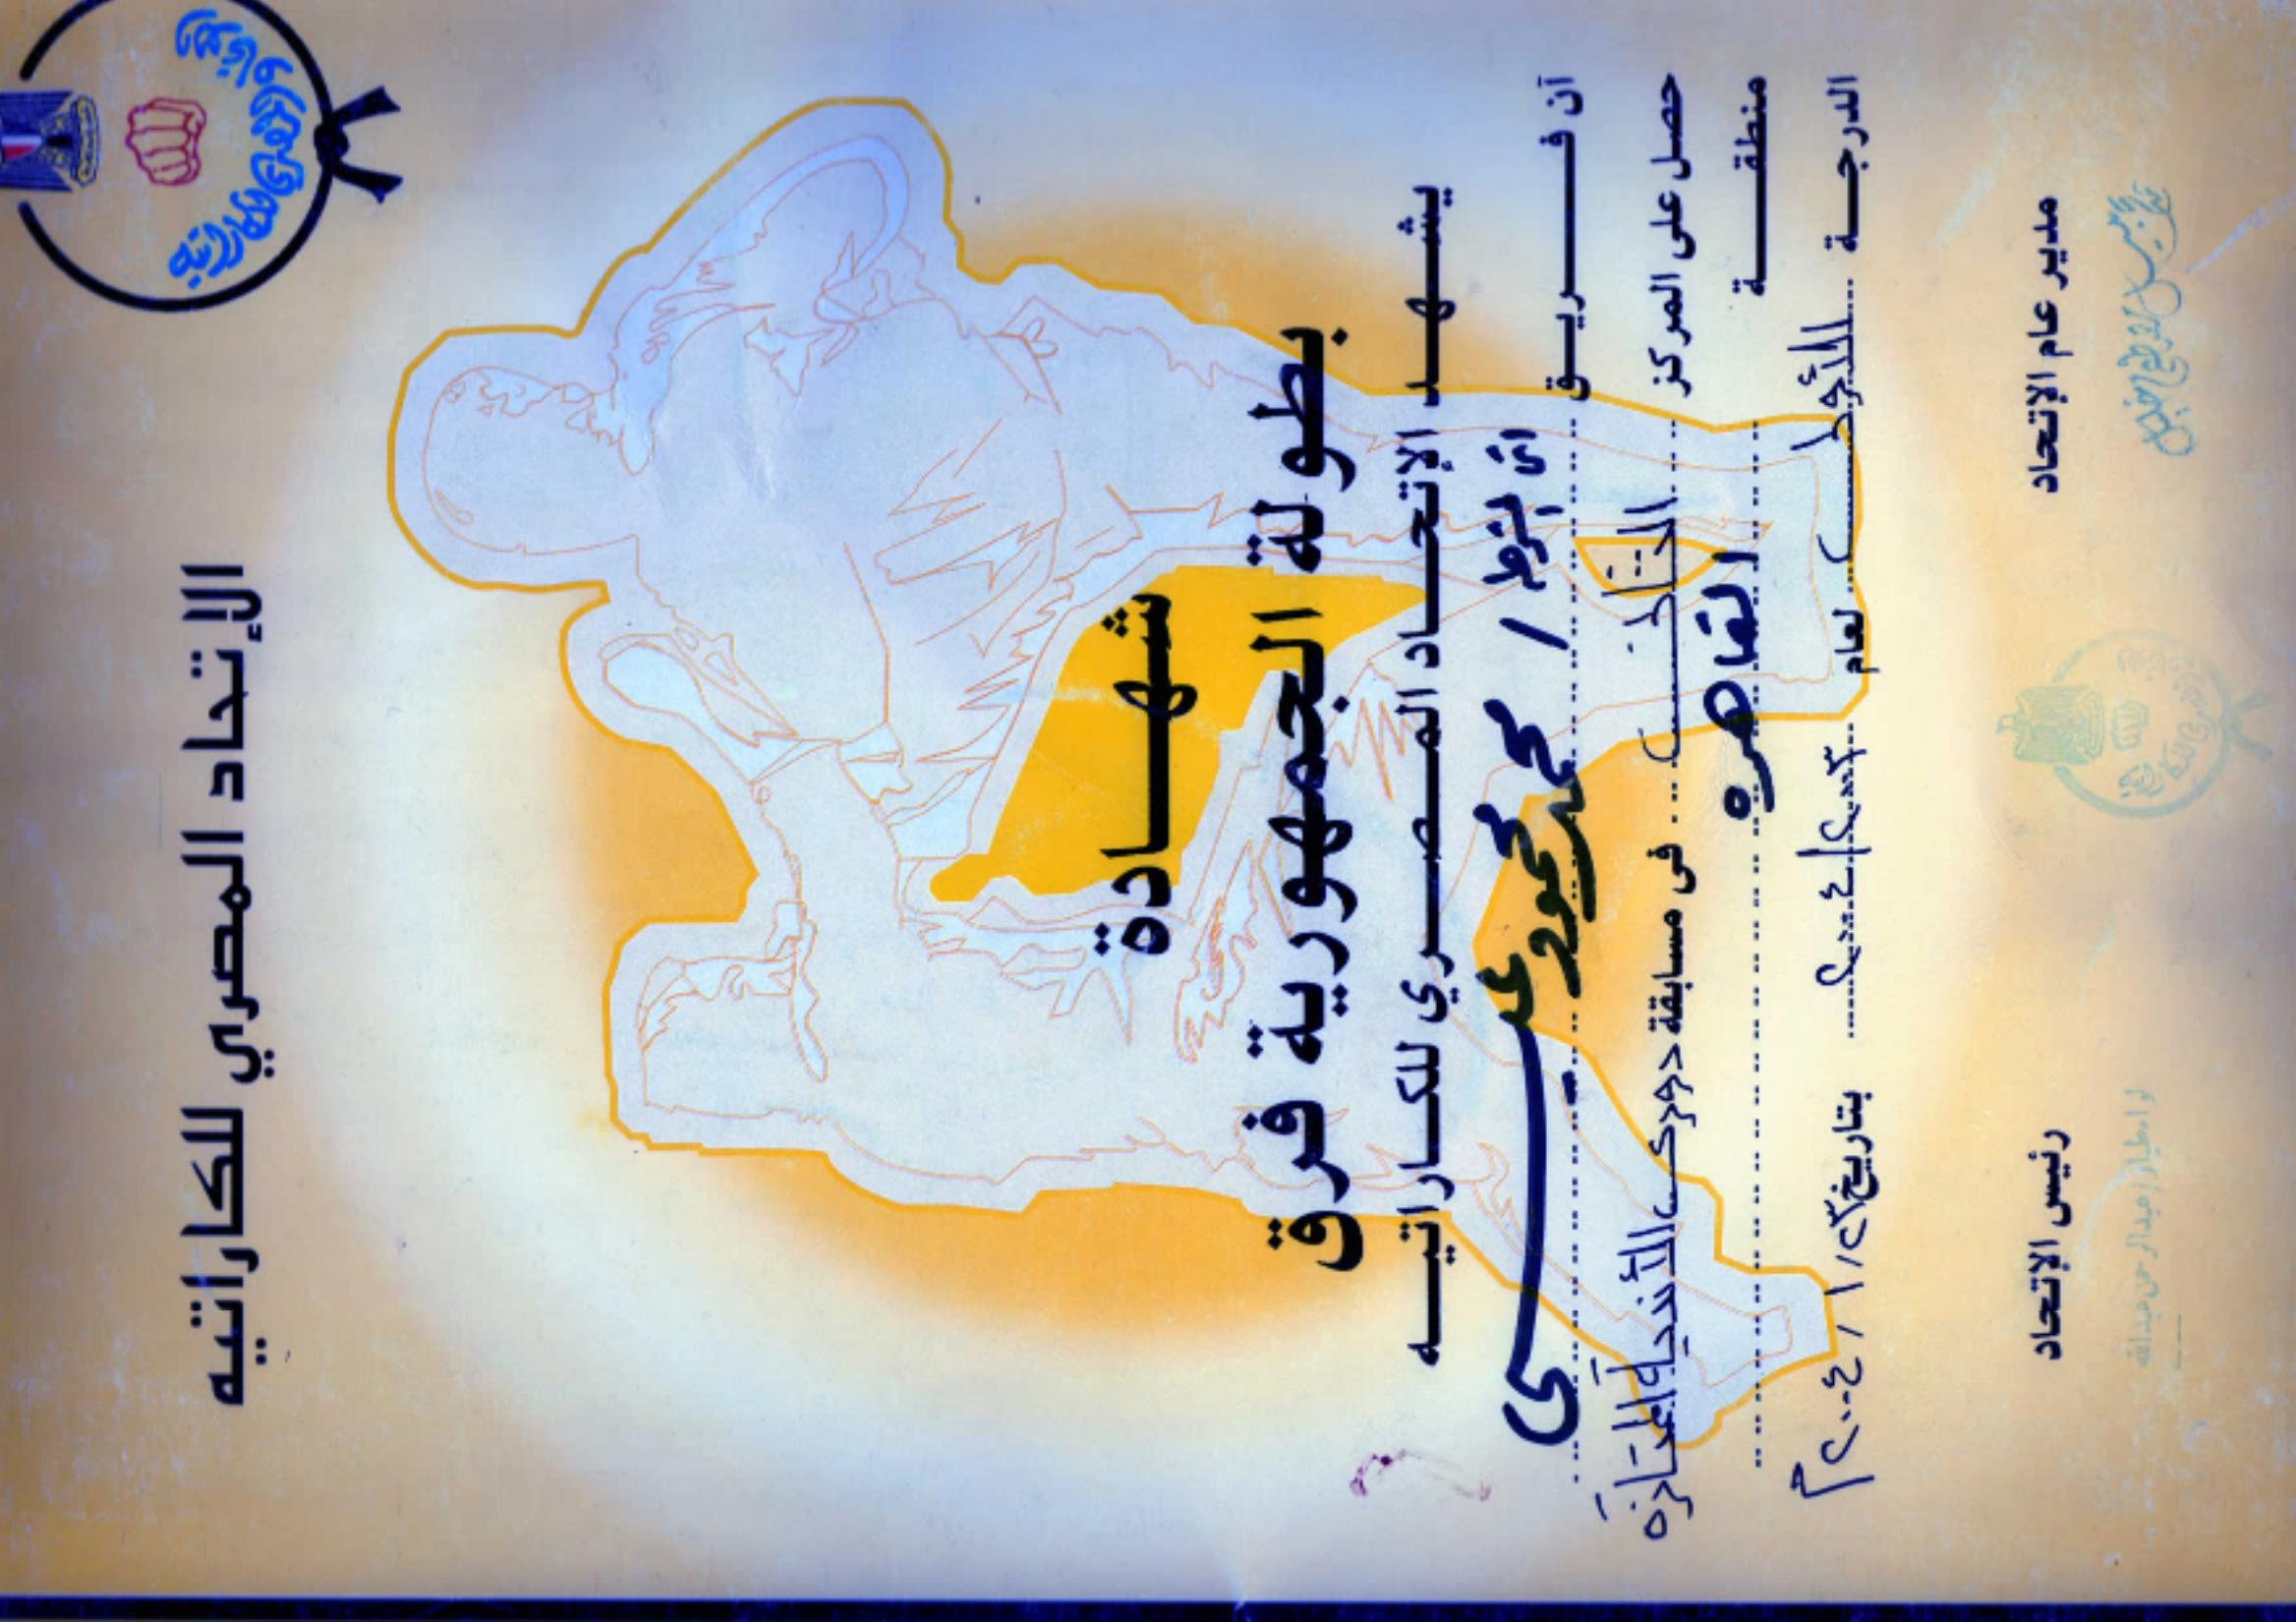 الاتحاد المصري للكاراتيه
الإتحاد المصري للكاراتيه
شهادة
بطولة الجمهورية فرق
يشهد الإتحاد المصري للكاراتيه
أن فريق / محمد محمود عيسى
حصل على المركز الثانى فى مسابقة دورى الأندية الممتازه
منطقة القاهره
الدرجة الأولى لعام ٢٠٠٣/٢٠٠٤ بتاريخ ٢٣/١/٢٠٠٤م
مدير عام الإتحاد رئيس الإتحاد
لواء طيار / عبدالرحمن عبدالله